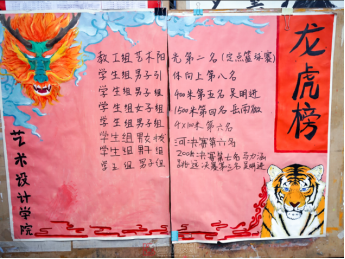 龙虎榜
艺术设计学院
教工组 艺术阳光 第二名(定点篮球赛)
学生组 男子引体向上第八名
学生组 男子400米第五名 吴明进
学生组 女子1500米第四名 岳雨
学生组 男子4×100米 第六名
学生组 决赛第六名
学生组 男子组 200米决赛第七名
学子组 男子组 跳远决赛第 名 吴明进